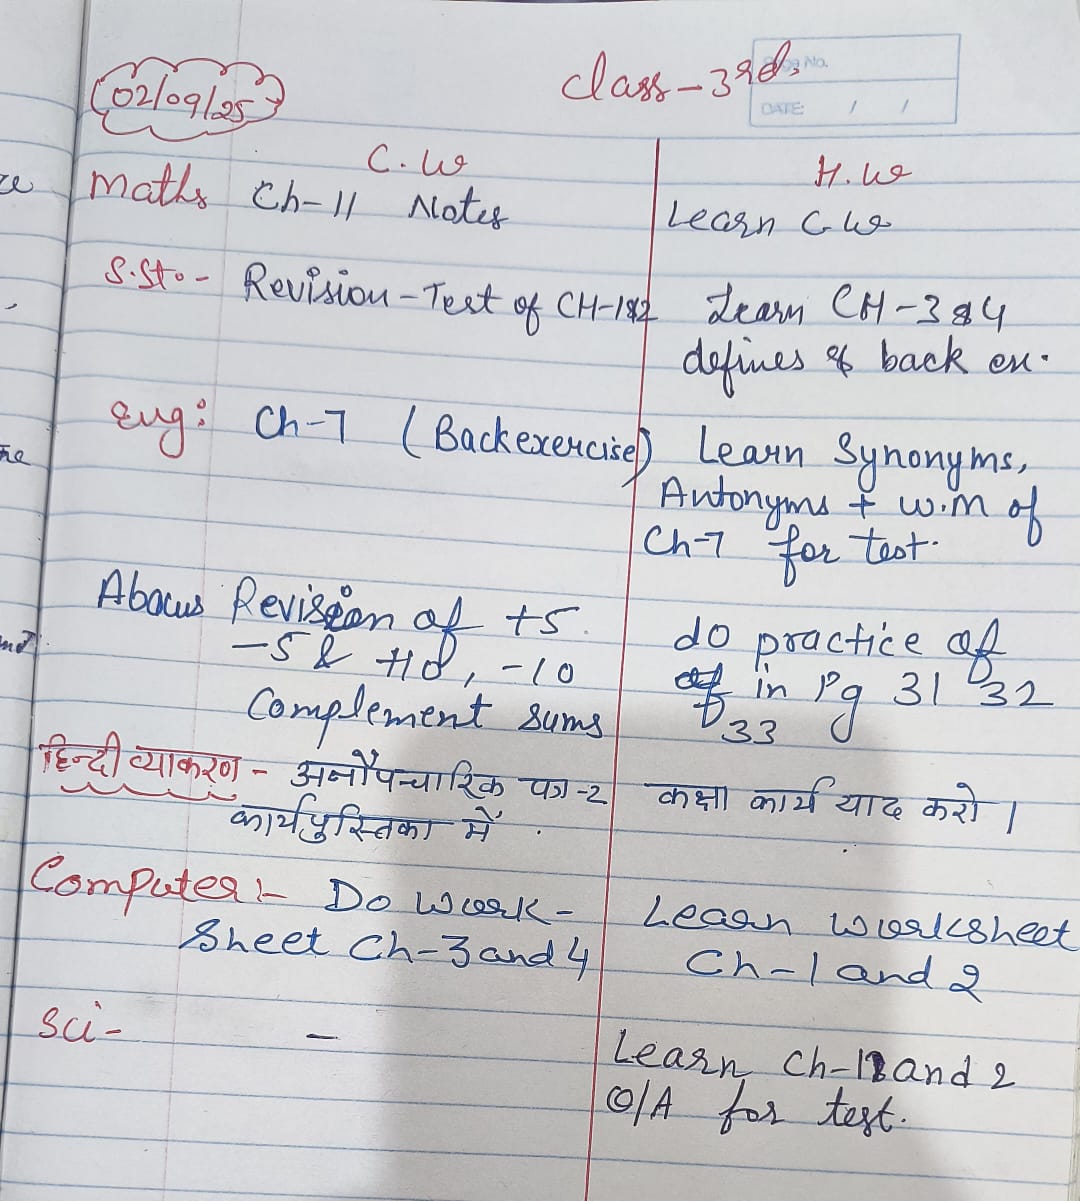 02/09/25
Class-3rd.
Page No.
DATE: / /
C.W
H.W
Maths Ch-11 Notes
Learn C.W
S.St.- Revision-Test of CH-1&2
Learn CH-3&4
defines & back ex.
Eng: Ch-7 (Backexercise)
Learn Synonyms,
Antonyms + W.M of
Ch-7 for test.
Abacus Revision of +5
-5 & +10, -10
Complement sums
do practice of
in Pg 31 32
33
हिन्दी व्याकरण - अनौपचारिक पत्र-2
कार्यपुस्तिका में
कक्षा कार्य याद करो।
Computer:- Do Work-
Sheet Ch-3 and 4
Learn worksheet
Ch-1 and 2
Sci- -
Learn Ch-1 and 2
Q/A for test.